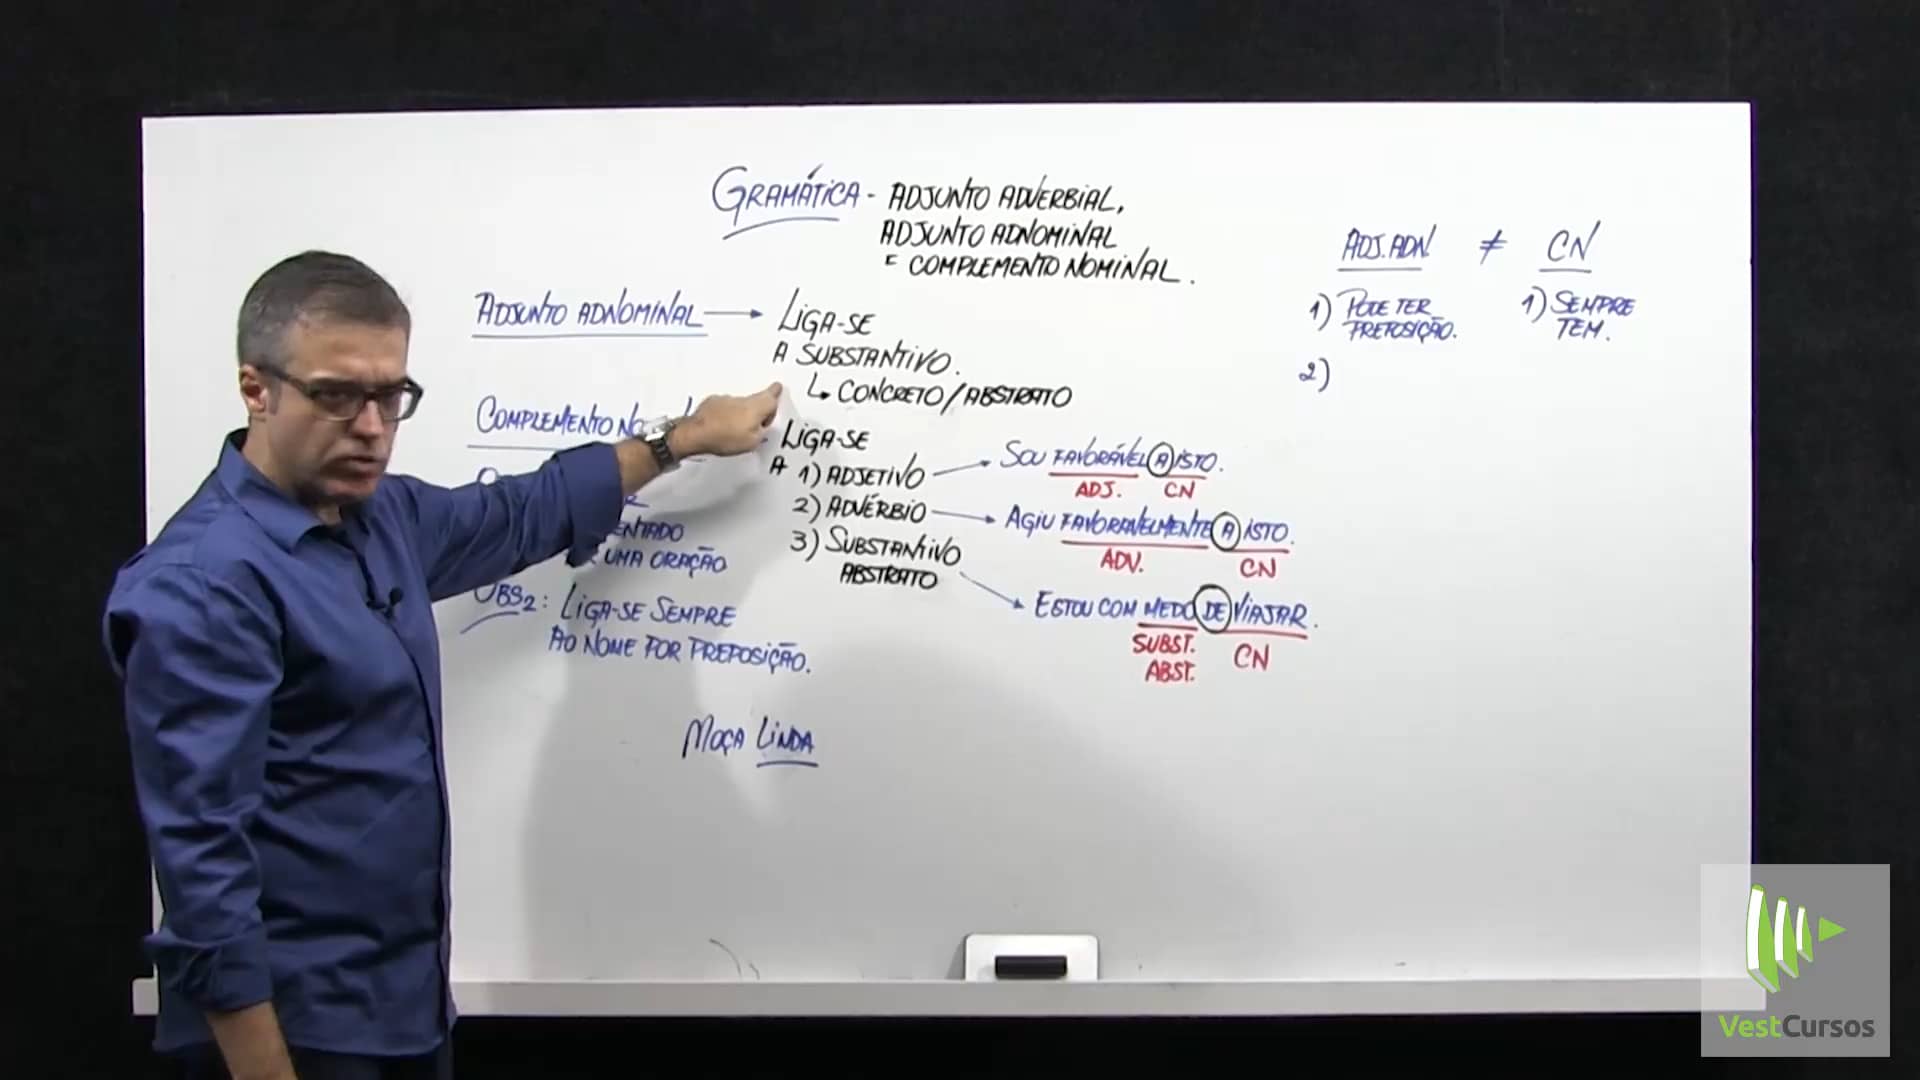 GRAMÁTICA - ADJUNTO ADVERBIAL,
ADJUNTO ADNOMINAL
E COMPLEMENTO NOMINAL.
ADJUNTO ADNOMINAL
LIGA-SE
A SUBSTANTIVO.
CONCRETO/ABSTRATO
COMPLEMENTO NO
LIGA-SE
A 1) ADJETIVO
2) ADVÉRBIO
3) SUBSTANTIVO
ABSTRATO
SOU FAVORÁVEL A ISTO.
ADJ. CN
AGIU FAVORAVELMENTE A ISTO.
ADV. CN
ESTOU COM MEDO DE VIAJAR.
SUBST. CN
ABST.
ENTADO
UMA ORAÇÃO
OBS2: LIGA-SE SEMPRE
AO NOME POR PREPOSIÇÃO.
MOÇA LINDA
ADJ. ADN. ≠ CN
1) PODE TER
PREPOSIÇÃO.
2)
1) SEMPRE
TEM.
VestCursos